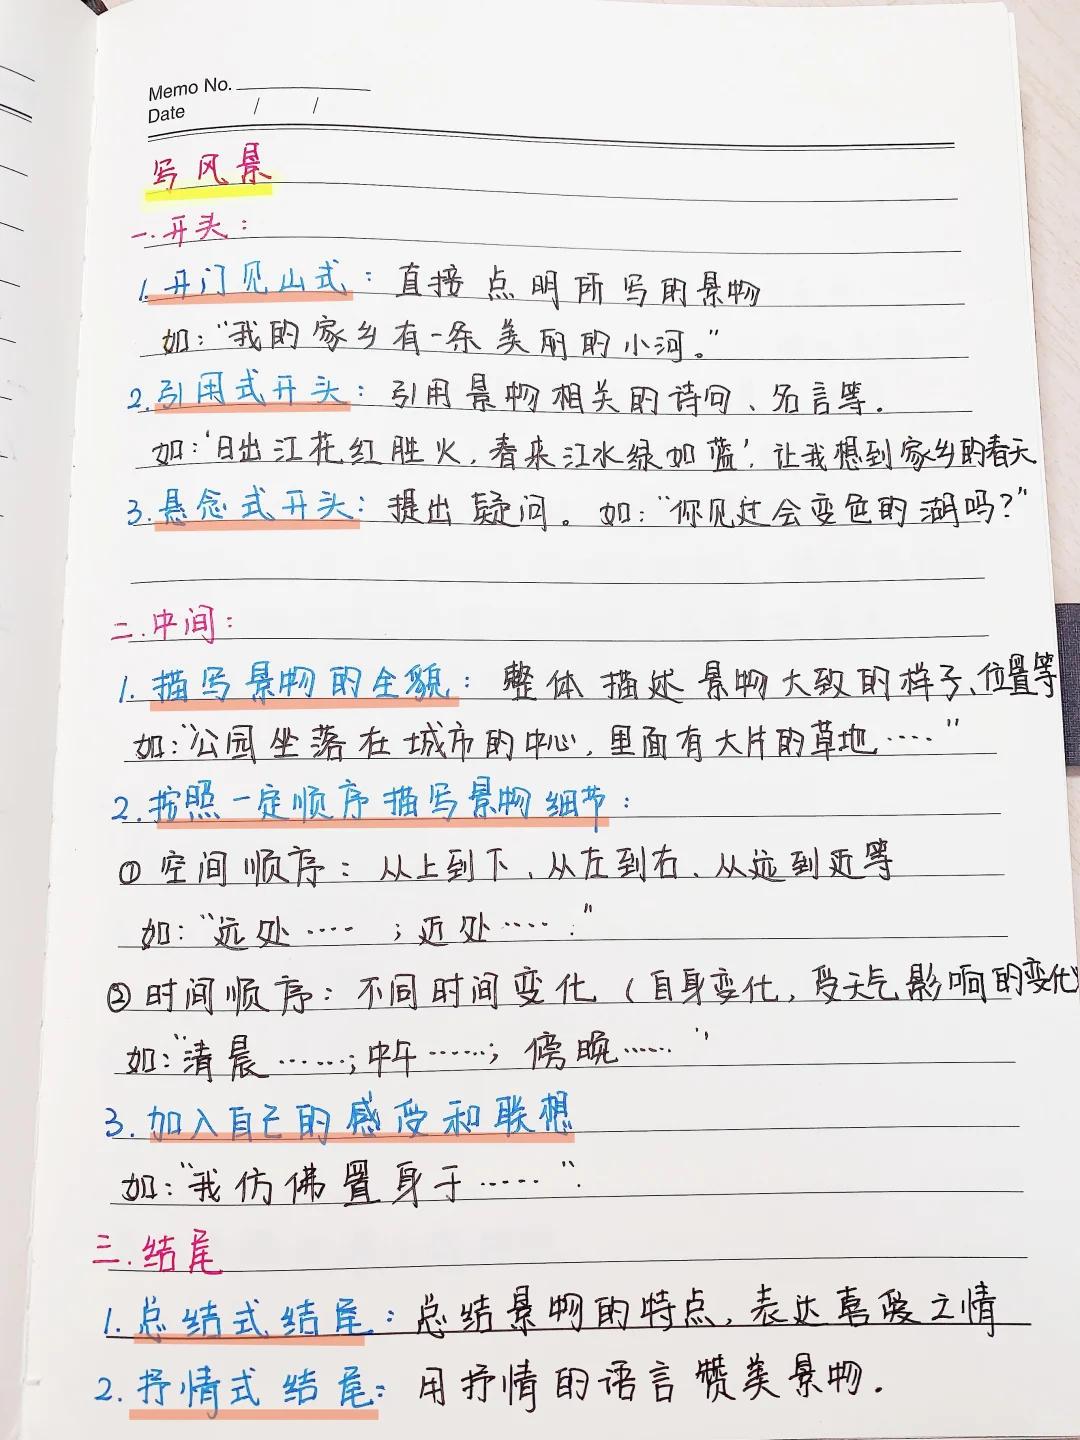 Memo No.
Date / /
写风景
一.开头：
1.开门见山式：直接点明所写的景物
如：“我的家乡有一条美丽的小河。”
2.引用式开头：引用景物相关的诗句、名言等.
如：‘日出江花红胜火，春来江水绿如蓝’，让我想到家乡的春天.
3.悬念式开头：提出疑问。如：“你见过会变色的湖吗？”
二.中间：
1.描写景物的全貌：整体描述景物大致的样子、位置等
如：“公园坐落在城市的中心，里面有大片的草地……”
2.按照一定顺序描写景物细节：
①空间顺序：从上到下、从左到右、从远到近等
如：“远处……；近处…….”
②时间顺序：不同时间变化（自身变化，受天气影响的变化）
如：“清晨……；中午……；傍晚……”
3.加入自己的感受和联想
如：“我仿佛置身于……”.
三.结尾
1.总结式结尾：总结景物的特点，表达喜爱之情
2.抒情式结尾：用抒情的语言赞美景物.